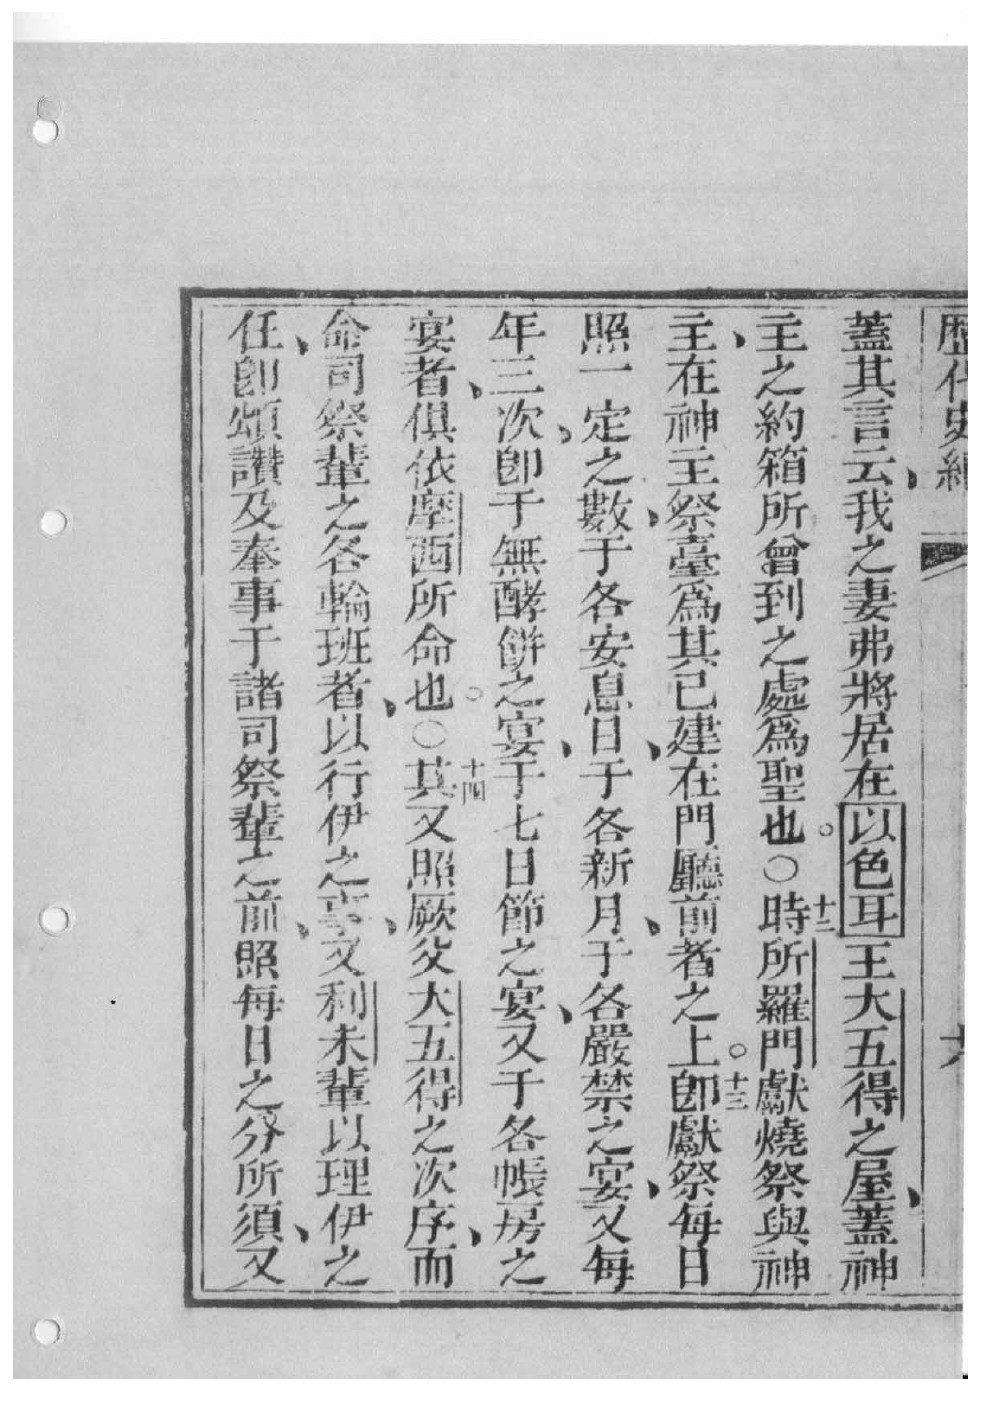 歷代史紀
蓋其言云、我之妻弗將居在以色耳王大五得之屋、蓋神
主之約箱所曾到之處爲聖也。○十二時所羅門獻燒祭與神
主、在神主祭臺爲其已建在門廳前者之上。十三卽獻祭每日
照一定之數、于各安息日、于各新月、于各嚴禁之宴、又每
年三次、卽于無酵餅之宴、于七日節之宴、又于各帳房之
宴者、俱依摩西所命也。○十四其又照厥父大五得之次序、而
命司祭輩之各輪班者、以行伊之事、又利未輩以理伊之
任、卽頌讚及奉事于諸司祭輩之前、照每日之分所須、又